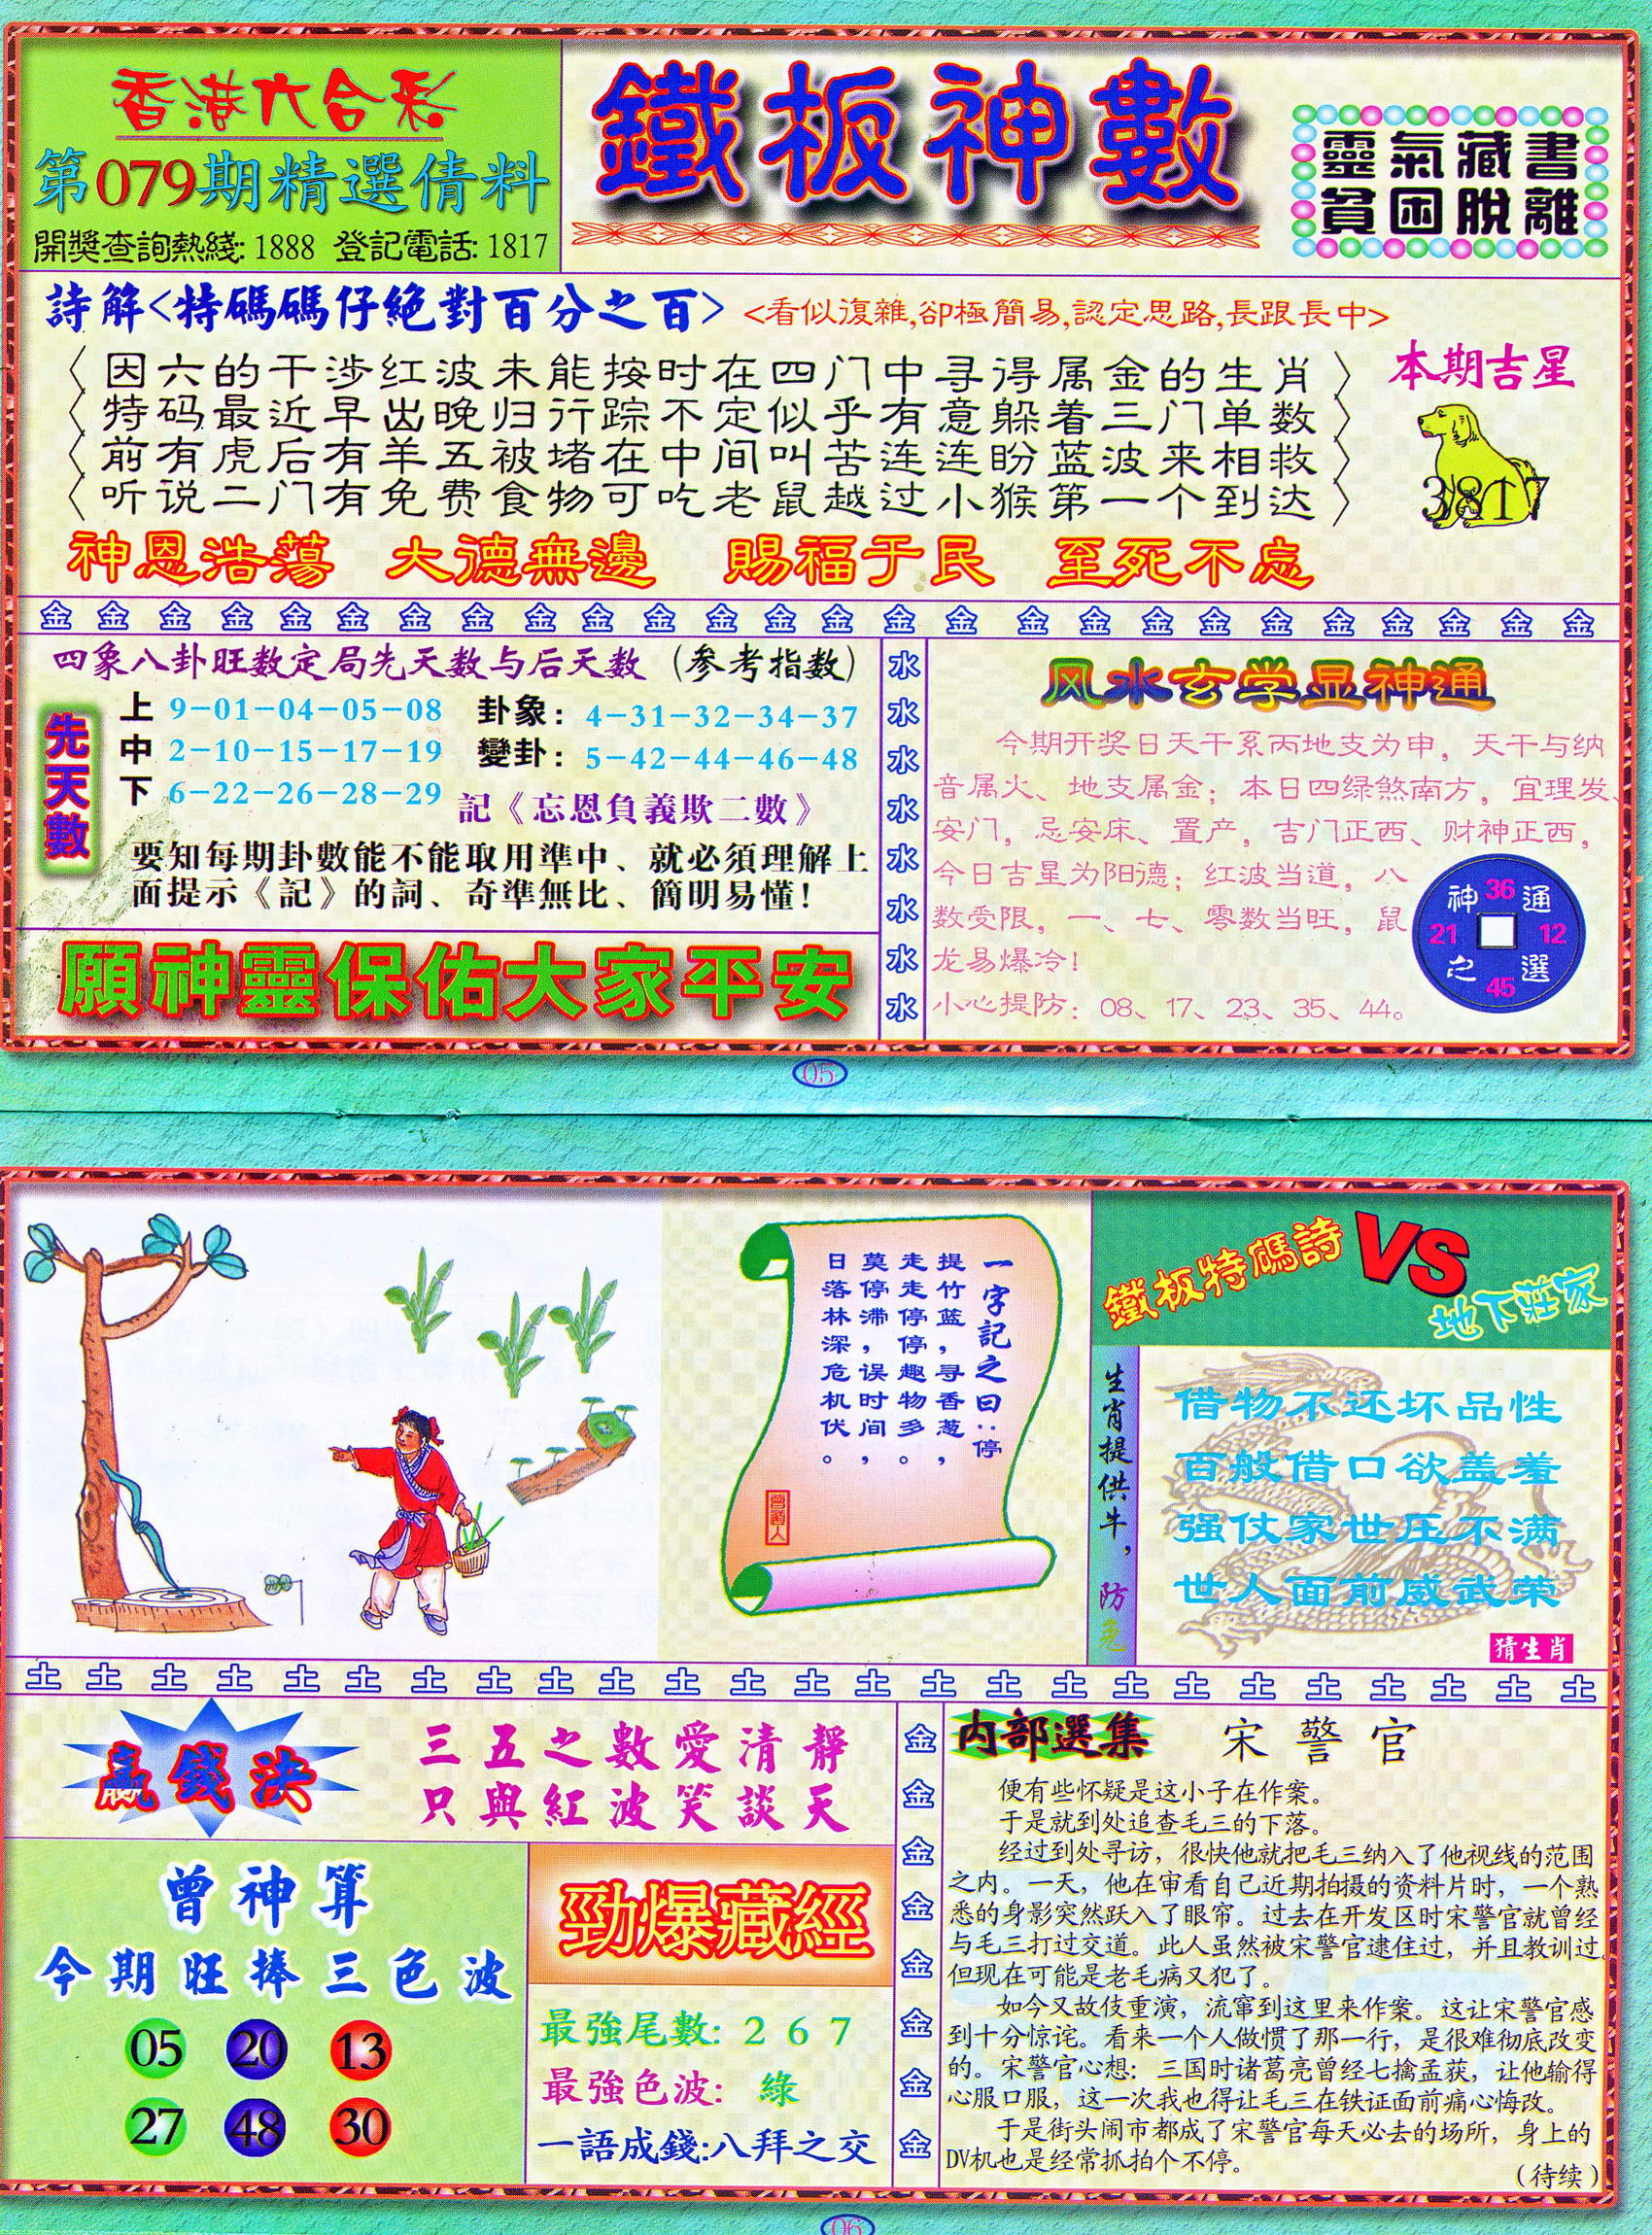 香港六合彩
第079期精選倩料
開獎查詢熱綫: 1888 登記電話: 1817
鐵板神數
靈氣藏書
貧困脫離
詩解<特碼碼仔絕對百分之百>
<看似復雜,卻極簡易,認定思路,長跟長中>
因六的干涉红波未能按时在四门中寻得属金的生肖
特码最近早出晚归行踪不定似乎有意躲着三门单数
前有虎后有羊五被堵在中间叫苦连连盼蓝波来相救
听说二门有免费食物可吃老鼠越过小猴第一个到达
本期吉星
3817
神恩浩蕩 大德無邊 賜福于民 至死不忘
金 金 金 金 金 金 金 金 金 金 金 金 金 金 金 金 金 金 金 金 金 金 金 金 金
四象八卦旺数定局先天数与后天数 (参考指数)
先天數
上 9-01-04-05-08 卦象: 4-31-32-34-37
中 2-10-15-17-19 變卦: 5-42-44-46-48
下 6-22-26-28-29 記《忘恩負義欺二數》
要知每期卦數能不能取用準中、就必須理解上
面提示《記》的詞、奇準無比、簡明易懂!
願神靈保佑大家平安
水
水
水
水
水
水
水
水
风水玄学显神通
今期开奖日天干系丙地支为申，天干与纳
音属火、地支属金；本日四绿煞南方，宜理发、
安门，忌安床、置产，吉门正西、财神正西，
今日吉星为阳德；红波当道，八
数受限，一、七、零数当旺，鼠
龙易爆冷！
小心提防：08、17、23、35、44。
神 36 通
21 12
之 45 選
05
一字記之曰：停
提竹篮，寻香葱，
走走停停，趣物多。
莫停滞，误时间，
日落林深，危机伏。
曾道人
鐵板特碼詩
VS
地下莊家
生肖提供牛，防兔
借物不还坏品性
百般借口欲盖羞
强仗家世压不满
世人面前威武荣
猜生肖
土 土 土 土 土 土 土 土 土 土 土 土 土 土 土 土 土 土 土 土 土 土 土 土 土
贏錢決
三五之數愛清靜
只與紅波笑談天
曾神算
今期旺捧三色波
05 20 13
27 48 30
勁爆藏經
最強尾數: 2 6 7
最強色波: 綠
一語成錢:八拜之交
金
金
金
金
金
金
金
金
内部選集 宋警官
便有些怀疑是这小子在作案。
于是就到处追查毛三的下落。
经过到处寻访，很快他就把毛三纳入了他视线的范围
之内。一天，他在审看自己近期拍摄的资料片时，一个熟
悉的身影突然跃入了眼帘。过去在开发区时宋警官就曾经
与毛三打过交道。此人虽然被宋警官逮住过，并且教训过。
但现在可能是老毛病又犯了。
如今又故伎重演，流窜到这里来作案。这让宋警官感
到十分惊诧。看来一个人做惯了那一行，是很难彻底改变
的。宋警官心想：三国时诸葛亮曾经七擒孟获，让他输得
心服口服，这一次我也得让毛三在铁证面前痛心悔改。
于是街头闹市都成了宋警官每天必去的场所，身上的
DV机也是经常抓拍个不停。
(待续)
06